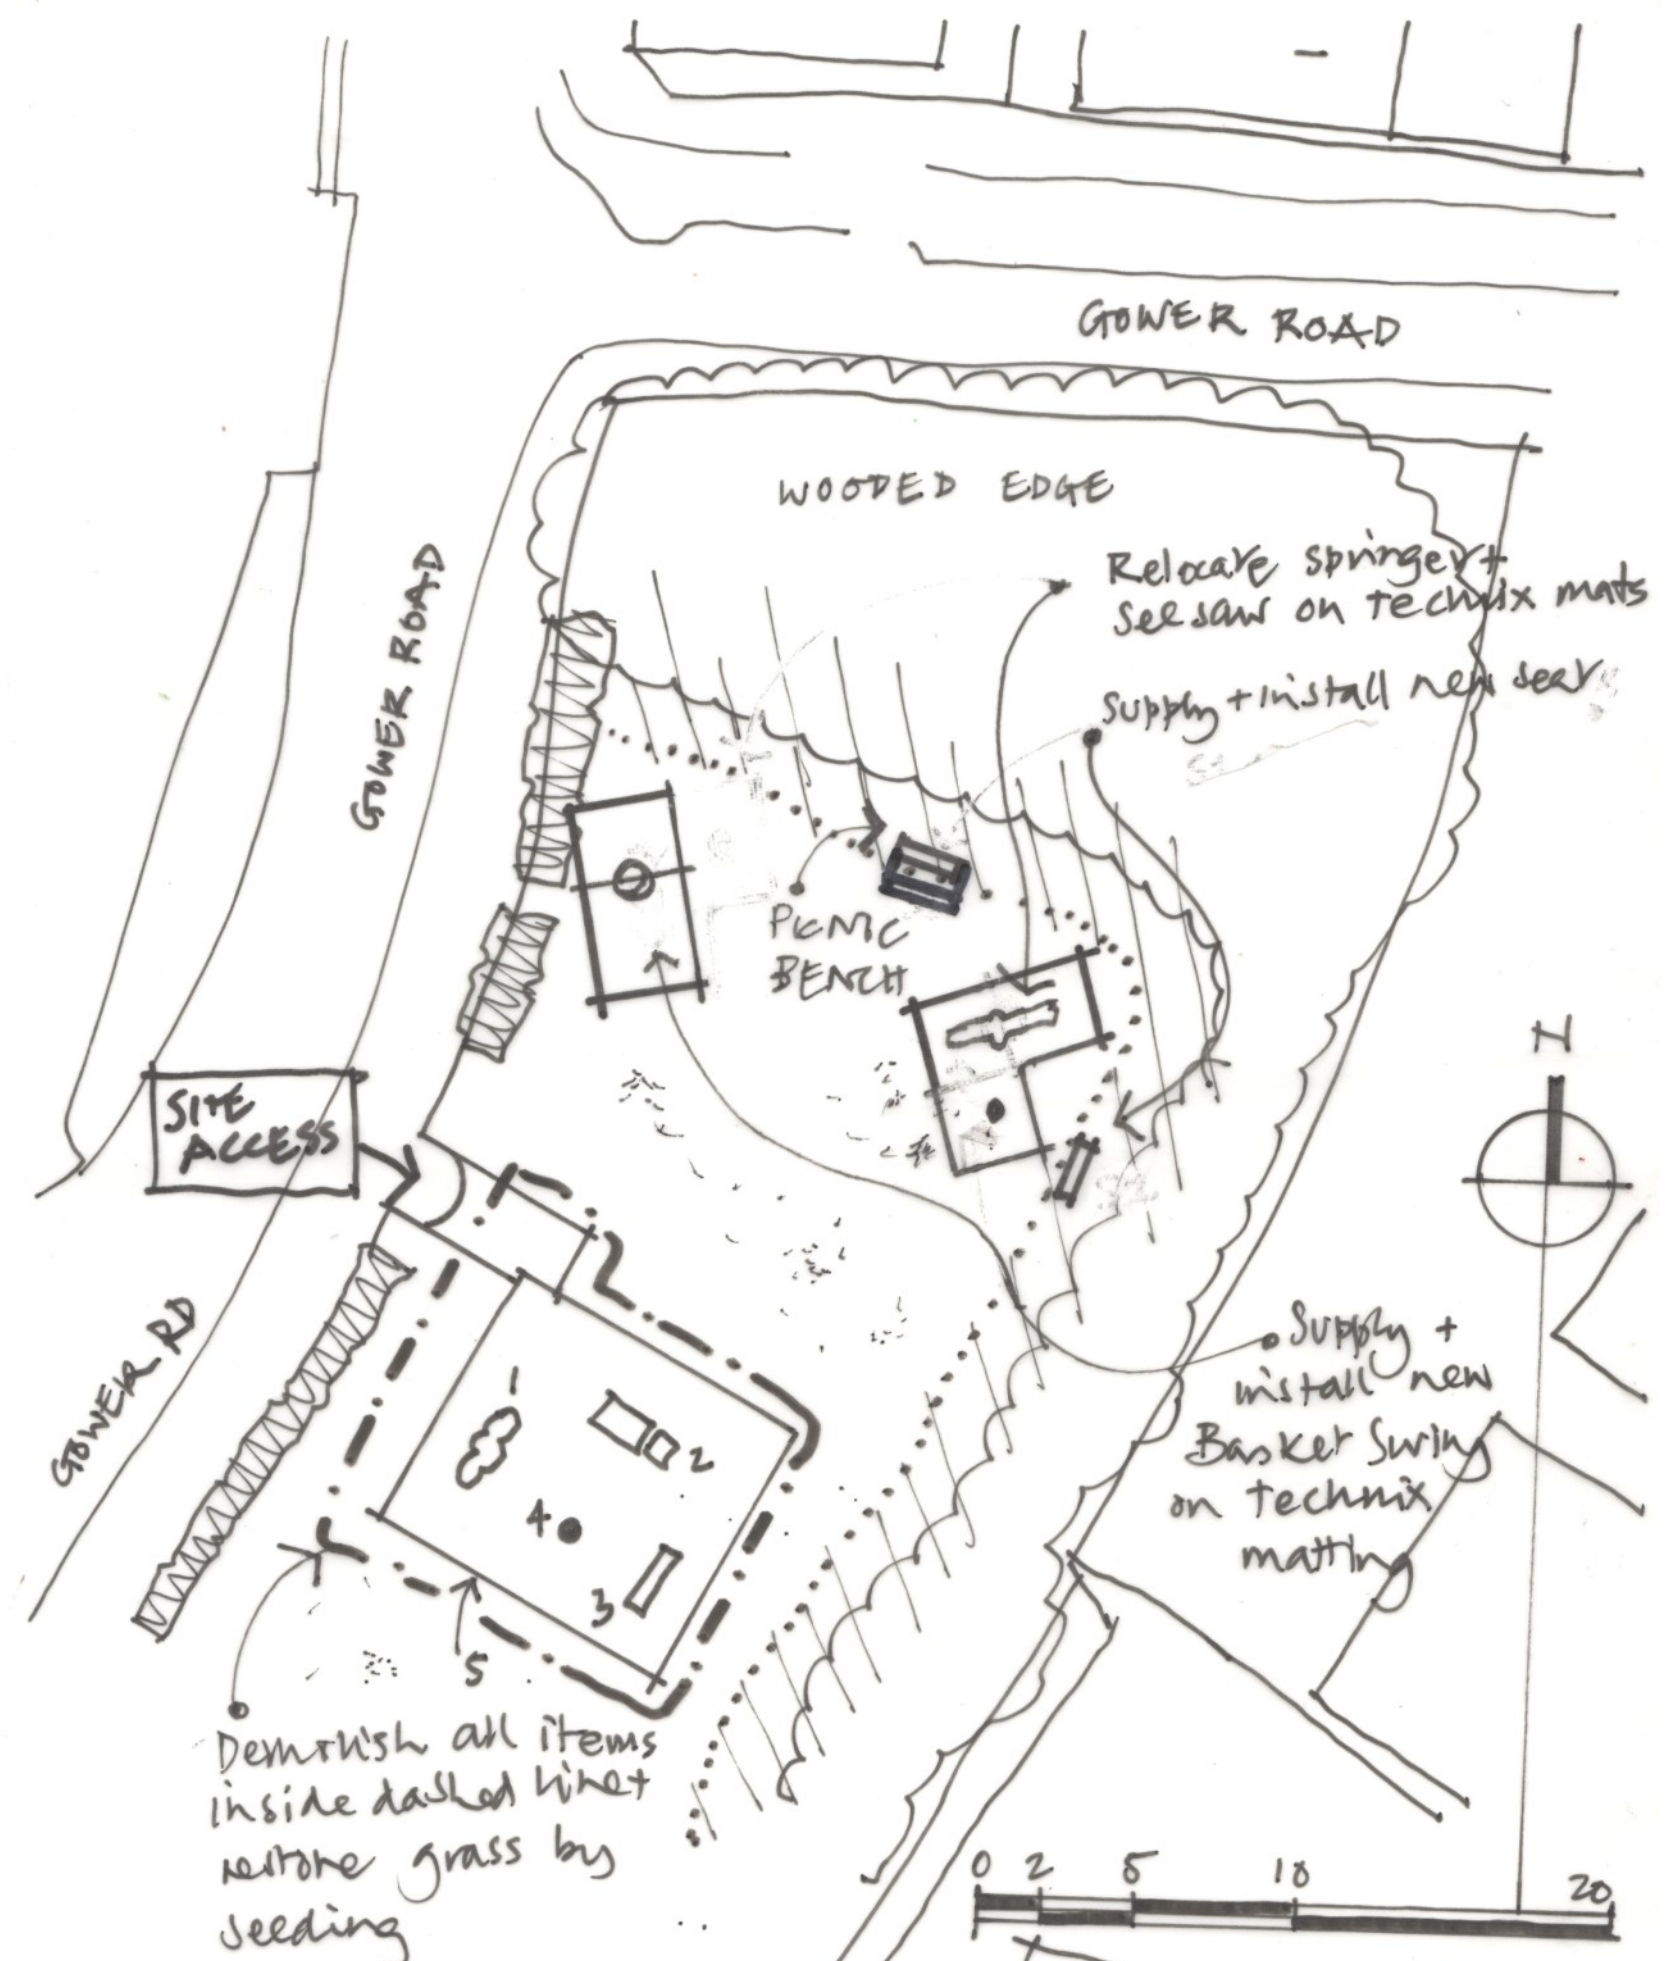 GOWER ROAD
WOODED EDGE
Relocate springer +
seesaw on technix mats
Supply + install new seat
GOWER ROAD
PICNIC
BENCH
N
SITE
ACCESS
GOWER RD
1
2
4
3
5
Supply +
install new
Basket Swing
on technix
matting
Demolish all items
inside dashed line +
restore grass by
seeding
0 2 5 10 20